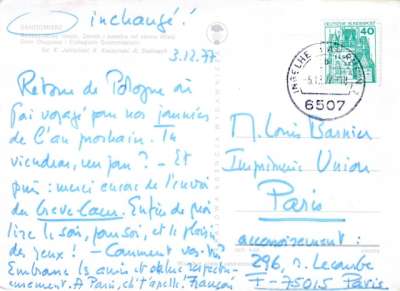 inchangé !
SANDOMIERZ
3.12.77
Retour de Pologne où
j'ai voyagé pour nos journées
de l'an prochain. Tu
viendras, un jour ? – Et
puis : merci encore de l'envoi
du brevelaen. Enfin de quoi
lire le soir, pour soi, et le plaisir
des yeux ! – Comment vas-tu ?
Embrasse les amis et oblitère respectu-
eusement. A Paris, chit'appelle. François
DEUTSCHE BUNDESPOST
40
INGELHEIM AM RHEIN
6507
M. Louis Barnier
Imprimerie Union
Paris
acconoirement :
296, r. Lecourbe
F-75015 Paris